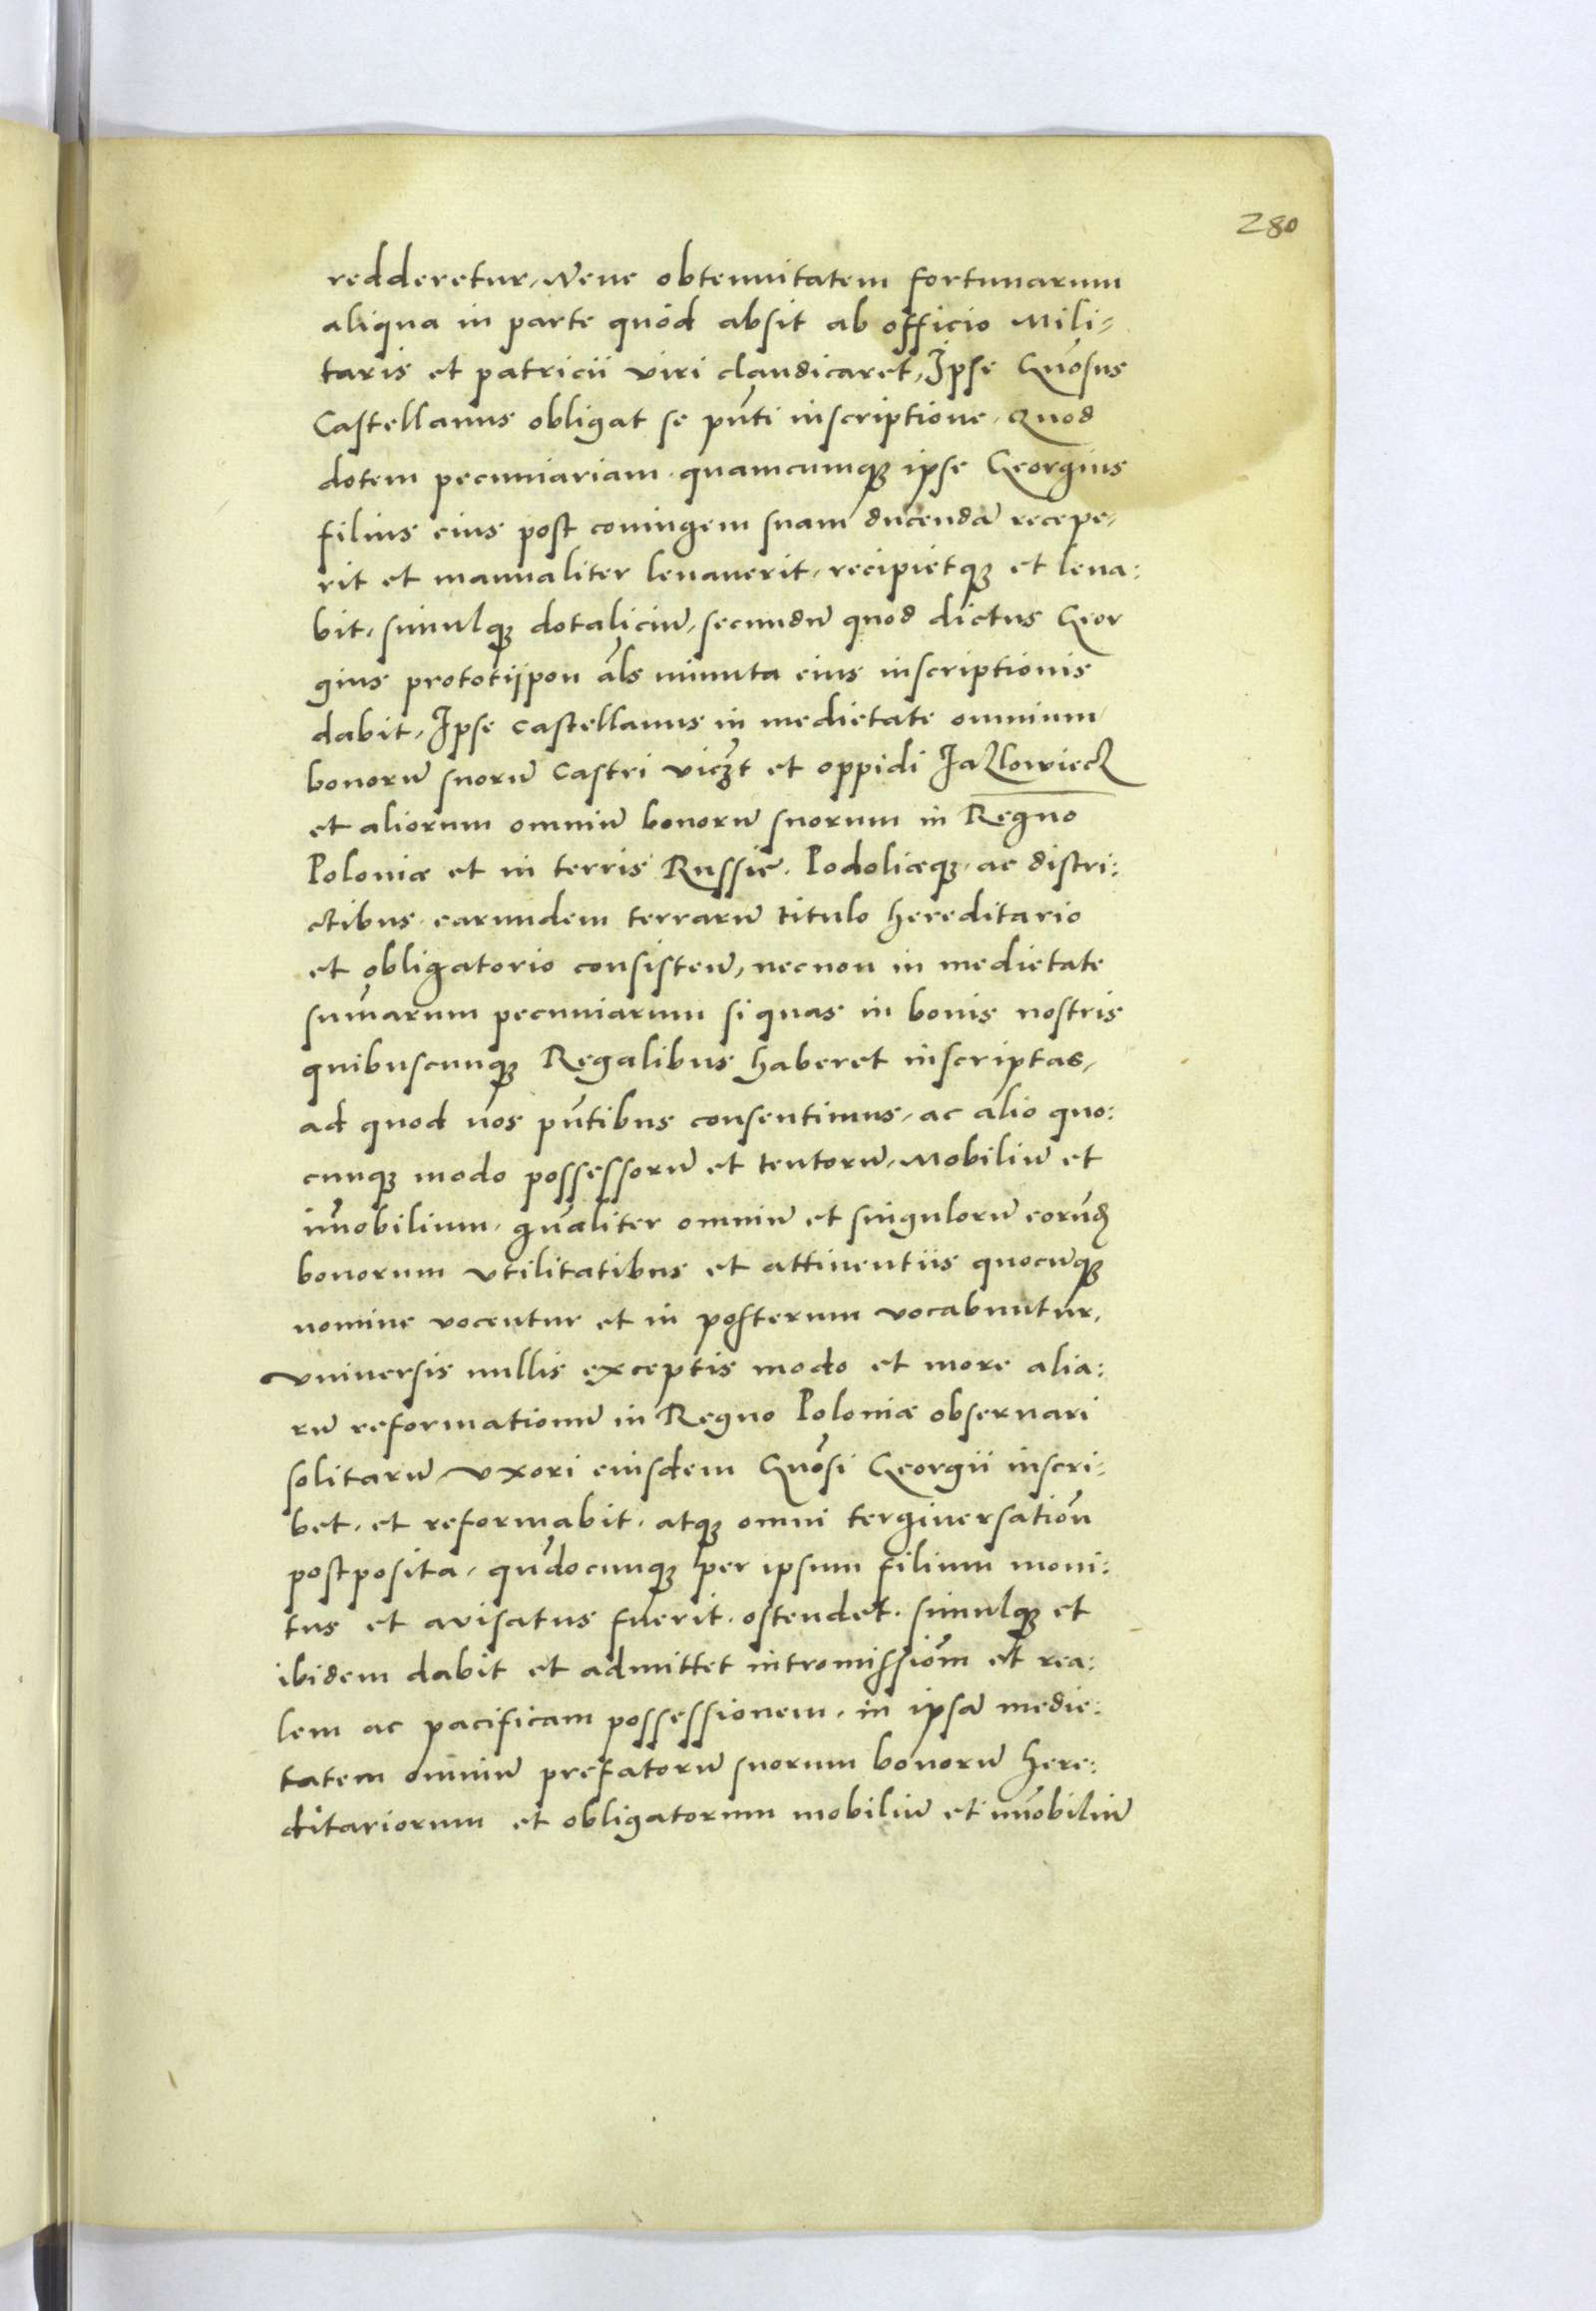 280
redderetur, Neve obtenuitatem fortunarum
aliqua in parte quod absit ab officio Mili-
taris et patricii viri claudicaret, Ipse Gnõsus
Castellanus obligat se pñti inscriptione. Quod
dotem pecuniariam. quamcumqꝫ ipse Georgius
filius eius post coniugem suam ducendã recepe-
rit et manualiter leuauerit, recipietqꝫ et leua:
bit, simulqꝫ dotaliciũ, secundũ quod dictus Geor
gius prototijpon als̃ minuta eius inscriptionis
dabit, Ipse castellanus in medietate omnium
bonorũ suorũ Castri viczt̃ et oppidi Jazlowiecz
et aliorum omniũ bonorũ suorum in Regno
Poloniæ et in terris Russie. Podoliæqꝫ. ac distri:
ctibus earundem terrarũ titulo hereditario
et obligatorio consisteñ, necnon in medietate
sum̃arum pecuniarum si quas in bonis nostris
quibuscunqꝫ Regalibus haberet inscriptas,
ad quod nos pñtibus consentimus, ac alio quo:
cunqꝫ modo possessorũ et tentorũ, Mobiliũ et
im̃obilium, gñaliter omniũ et singulorũ eorũd
bonorum vtilitatibus et attinentiis quocũqꝫ
nomine vocentur et in posterum vocabuntur,
vniuersis nullis exceptis modo et more alia:
rũ reformationũ in Regno Poloniæ obseruari
solitarũ, vxori eiusdem Gnõsi Georgii inscri:
bet. et reformabit. atqꝫ omni tergiuersatioñ
postposita, quãdocunqꝫ per ipsum filium moni:
tus et avisatus fuerit. ostendet. simulqꝫ et
ibidem dabit et admittet intromissiõm et rea:
lem ac pacificam possessionem. in ipsã medie:
tatem omniũ prefatorũ suorum bonorũ here:
ditariorum et obligatorum mobiliũ et im̃obiliũ